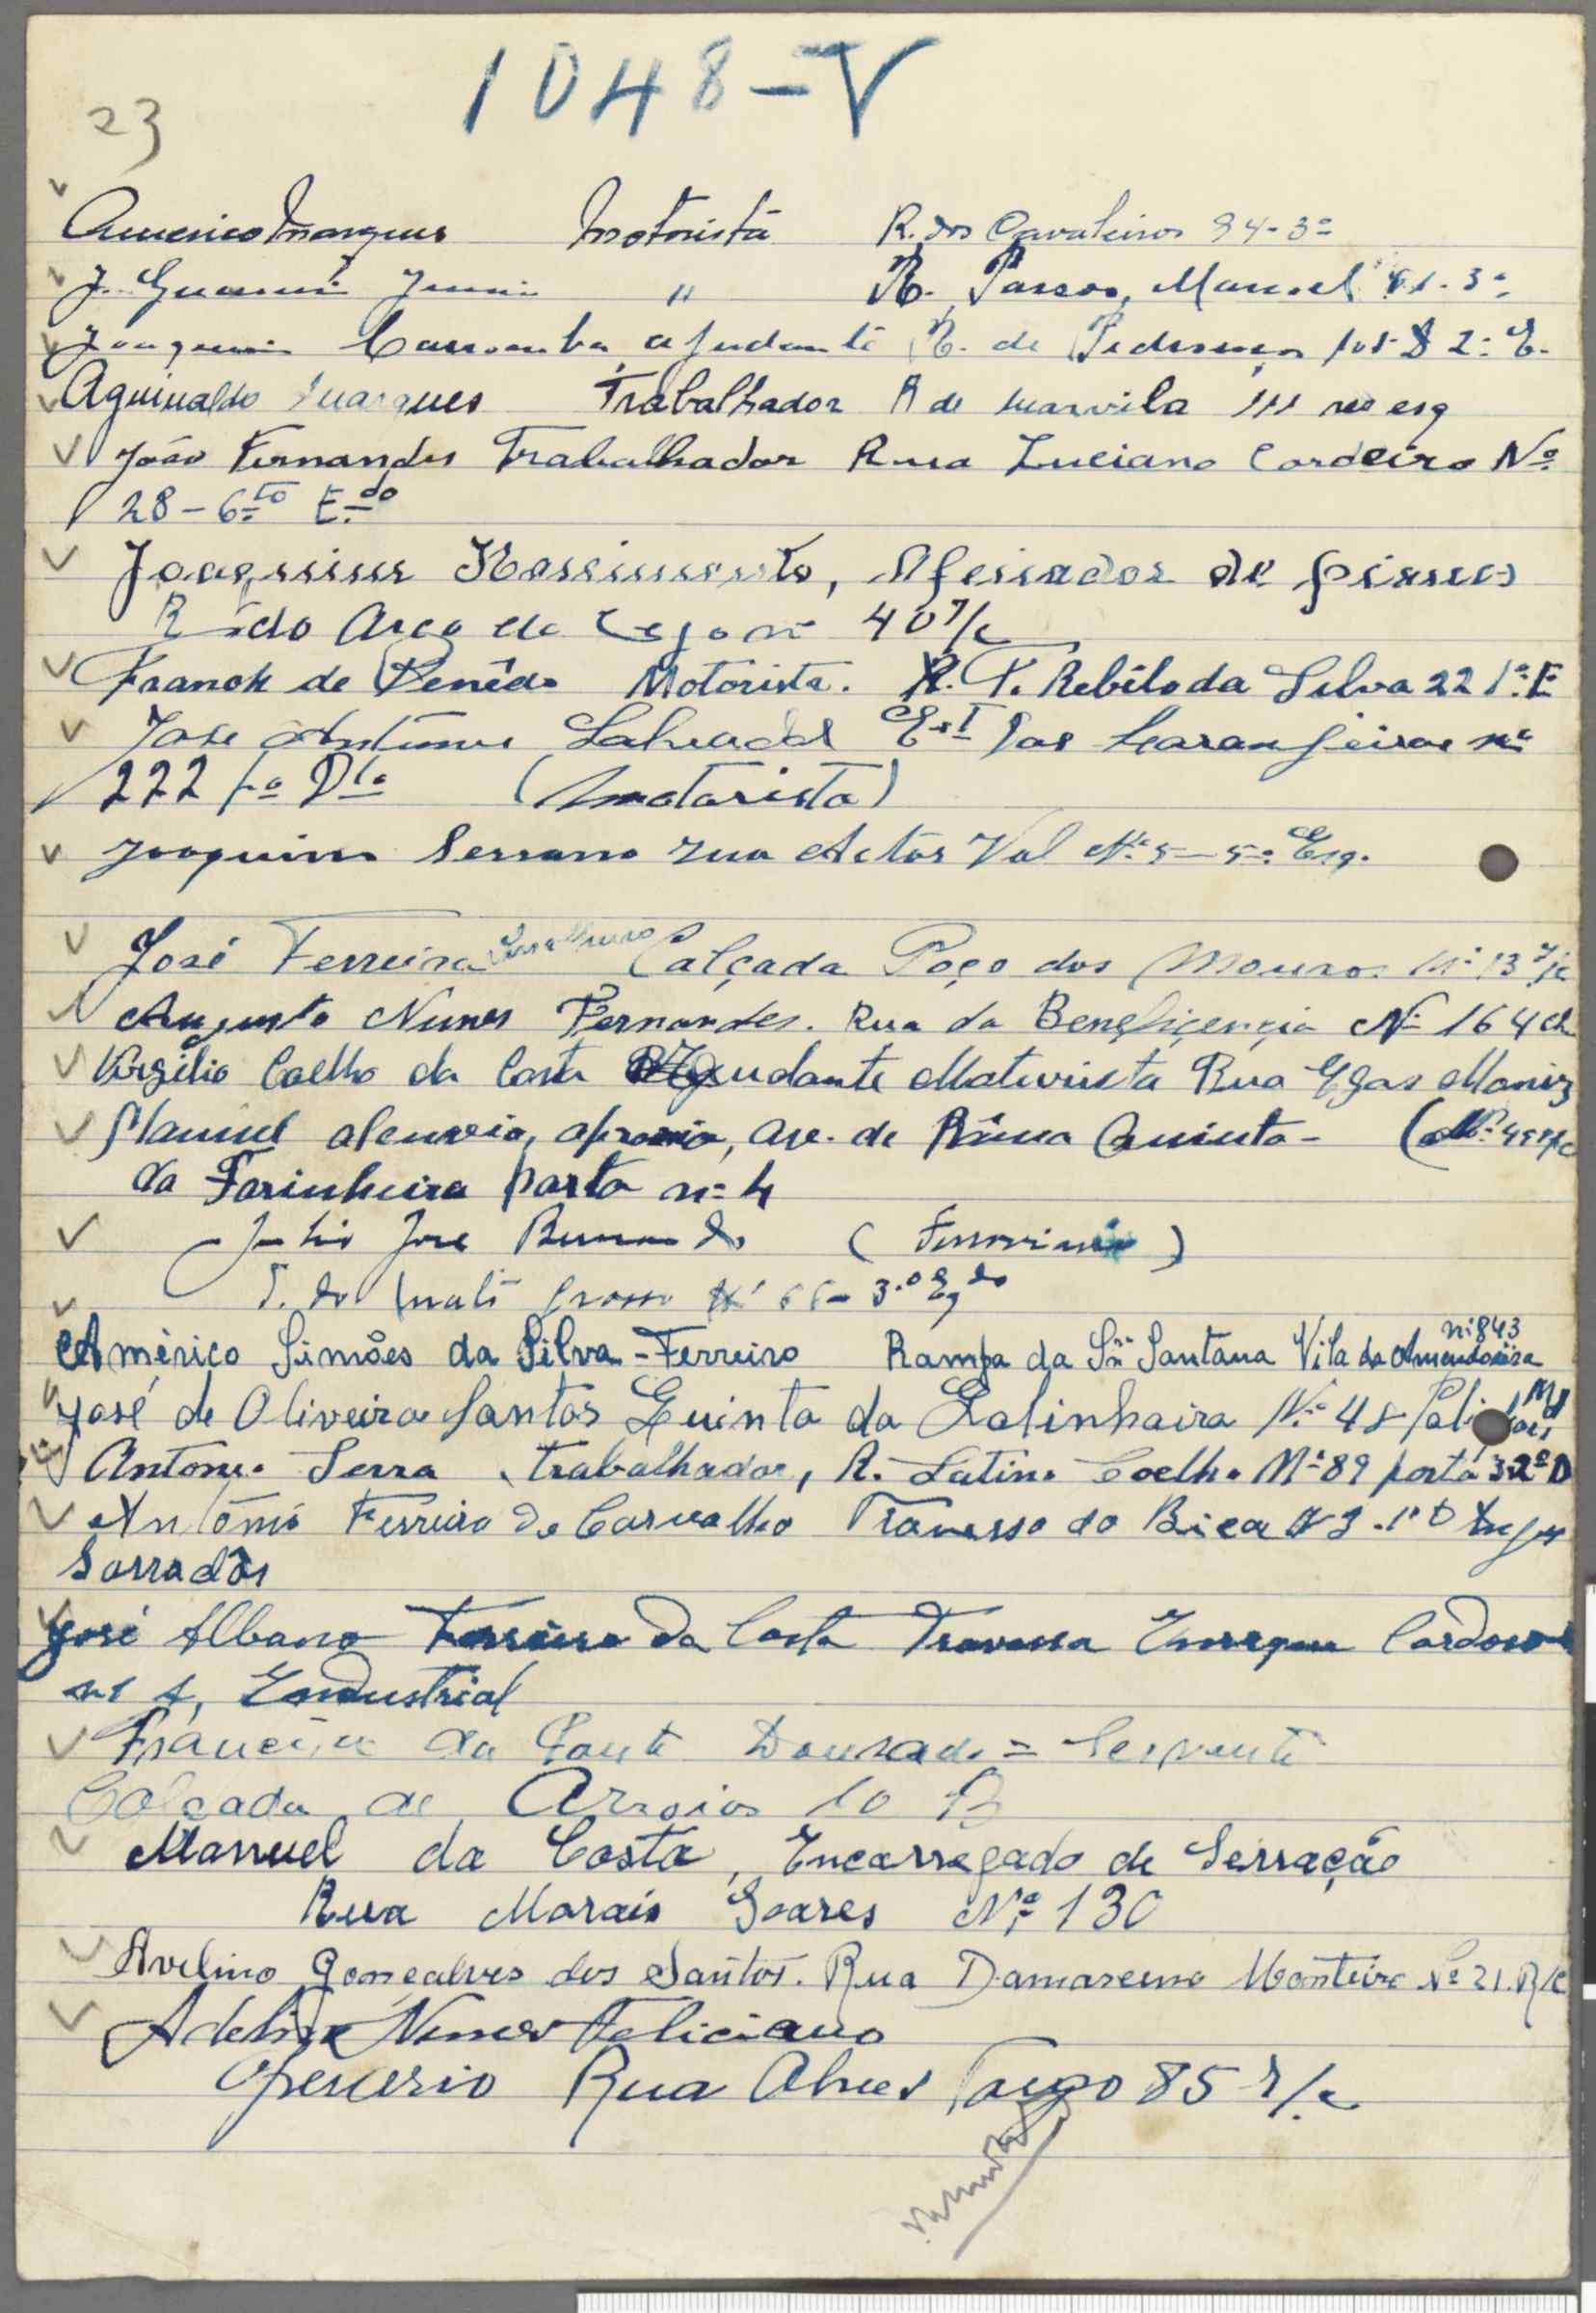 1048-V
23
Americo Marques Motorista R. dos Cavaleiros 94-3º
J. " R. Passos Manuel 3º
Joaquim ajudante R. de 2º E.
Aguinaldo Marques Trabalhador R de marvila 111 res esq
João Fernandes Trabalhador Rua Luciano Cordeiro Nº
28-6.to E.do
Joaquim Nascimento, Afinador de pianos
R do Arco do 40 r/c
Franck de Penêdo Motorista. R. F. Rebêlo da Silva 22 1º E
José António Salvador Est das Laranjeiras nº
222 1º Dto (motorista)
Joaquim Serrano rua Actor Val Nº 5-5º Esq.
José Ferreira Serralheiro Calçada Poço dos Mouros Nº 13 r/c
Augusto Nunes Fernandes. Rua da Beneficençia Nº 164
Virgilio Coelho da Costa Ajudante Motorista Rua Egas Moniz
Manuel Av. de Quinta -
da Farinheira porta nº 4
Julio José ( )
T. do Mato Grosso Nº 3.º Eqdo
Américo Simões da Silva - Ferreiro Rampa da Sn Santana Vila da Amendoeira
nº 843
José de Oliveira Santos Quinta da Nº 48
Antonio Serra, trabalhador, R. Latino Coelho Nº 89 porta 3-2º D
António Ferreira de Carvalho Travessa do Bica 1º D
Sarradôr
José Albano Ferreira da Costa Travessa Henrique Cardoso
nº 1, Endustrial
Francisco da Fonte Dourado = Servente
Calçada de Arroios 10
Manuel da Costa, Encarregado de Serração
Rua Morais Soares Nº 130
Avelino Gonçalves dos Santos. Rua Damasceno Monteiro Nº 21. R/C
Adelino Nunes Feliciano
Operario Rua Alves Targo 85 r/c